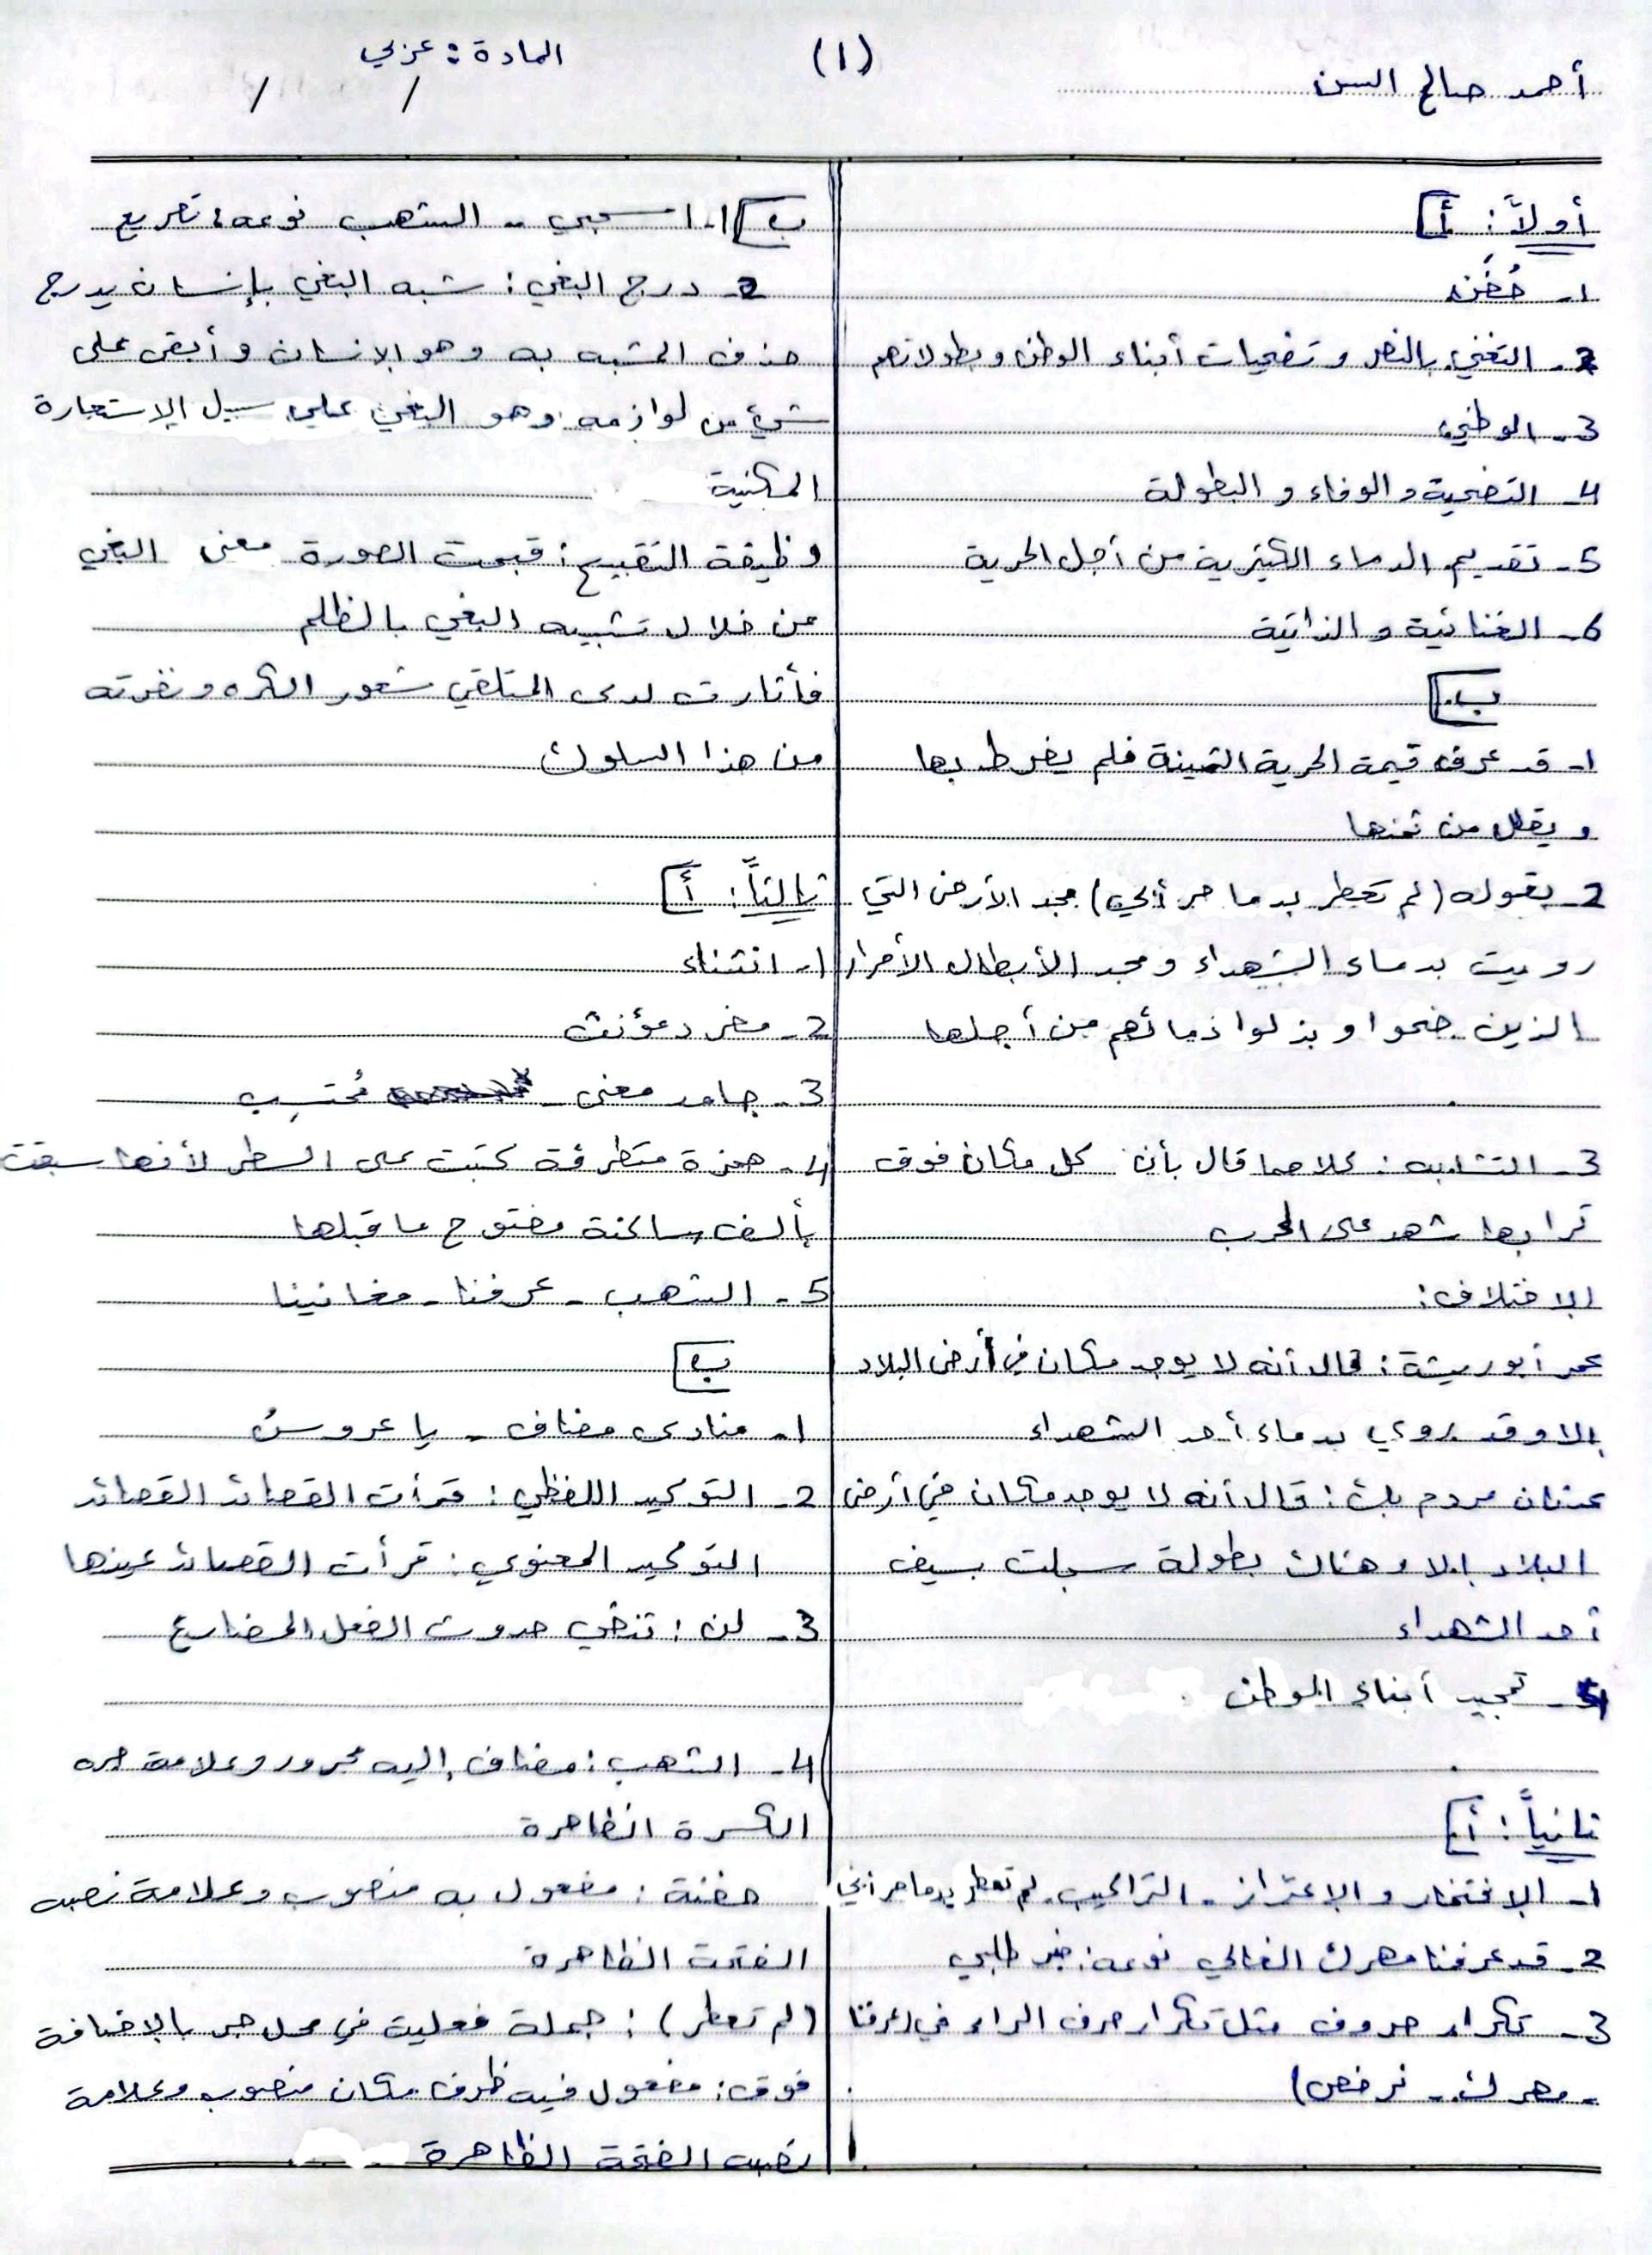 المادة : عربي
(1)
أحمد صالح السن
أولاً : أ
1- حَضَن
2- التغني بالنصر و تضحيات أبناء الوطن و بطولاتهم
3- الوطني
4- التضحية و الوفاء و البطولة
5- تقديم الدماء الكثيرية من أجل الحرية
6- الغنائية و الذاتية
ب
1- قد عرف قيمة الحرية الثمينة فلم يفرط بها
و يقلل من ثمنها
2- بقوله (لم تعطر بدما حر أبي) مجد الأرض التي
رويت بدماء الشهداء و مجد الأبطال الأحرار
الذين ضحوا و بذلوا دمائهم من أجلها
3- التشابه : كلاهما قال بأن كل مكان فوق
ترابها شهد على الحرب
الاختلاف :
عمر أبو ريشة : قال أنه لا يوجد مكان في أرض البلاد
إلا وقد روي بدماء أحد الشهداء
عدنان مردم بك : قال أنه لا يوجد مكان في أرض
البلاد إلا و هناك بطولة سجلت بسيف
أحد الشهداء
4- تمجيد أبناء الوطن
ثانياً : أ
1- الإفتخار و الإعتزاز - التراكيب لم تعطر بدما حر أبي
2- قد عرفنا مهرك الغالي نوعه : خبر طلبي
3- تكرار حروف مثل تكرار حرف الراء في (عرفنا
- مهرك - نرخص)
ب 1- اسحبي - الشهب نوعه : تصريع
2- درج البغي : شبه البغي بإنسان يدرج
حذف المشبه به وهو الإنسان و أبقى على
شيء من لوازمه وهو البغي على سبيل الإستعارة
المكنية
وظيفة التقبيح : قبحت الصورة معنى البغي
من خلال تشبيه البغي بالظلم
فأثارت لدى المتلقي شعور الكره و نفرته
من هذا السلوك
ثالثاً : أ
1- انتشاء
2- مفرد مؤنث
3- جامد معنى - مُحتسِب
4- همزة متطرفة كتبت على السطر لأنها سبقت
بألف ساكنة مفتوح ما قبلها
5- الشهب - عرفنا - مغانينا
ب
1- منادى مضاف - يا عروسُ
2- التوكيد اللفظي : قرأت القصائد القصائد
التوكيد المعنوي : قرأت القصائد عينها
3- لن : تنفي حدوث الفعل المضارع
4- الشهب : مضاف إليه مجرور وعلامة جره
الكسرة الظاهرة
حفنة : مفعول به منصوب وعلامة نصبه
الفتحة الظاهرة
(لم تعطر) : جملة فعلية في محل جر بالإضافة
فوق : مفعول فيه ظرف مكان منصوب وعلامة
نصبه الفتحة الظاهرة